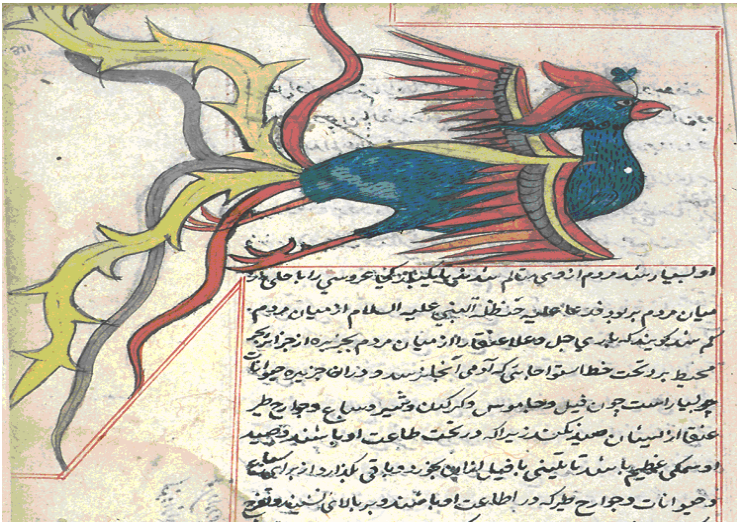 او بسیار شد مردم از وی متالم شدند عروسی را با حلی از
میان مردم بربود فدعا علیه حنظلة النبی علیه السلام از میان مردم
کم شد کویند که باری جل و علا عنقا را از میان مردم بجزیره از جزایر بحر
محیط برد تحت خط استوا جایی که آدمی آنجا نرسد و در آن جزیره حیوانات
بسیار است چون فیل و جاموس و کرکدن و شیر و سباع و جوارح طیر
عنقا از ایشان صید نکند زیرا که در تحت طاعت او باشند و صید
او سمکی عظیم باشد یا تنینی یا فیل از این بخورد و باقی بگذارد از برای سباع
و حیوانات و جوارح طیر که در اطاعت او باشند و بر بالای نشیند و تفرج